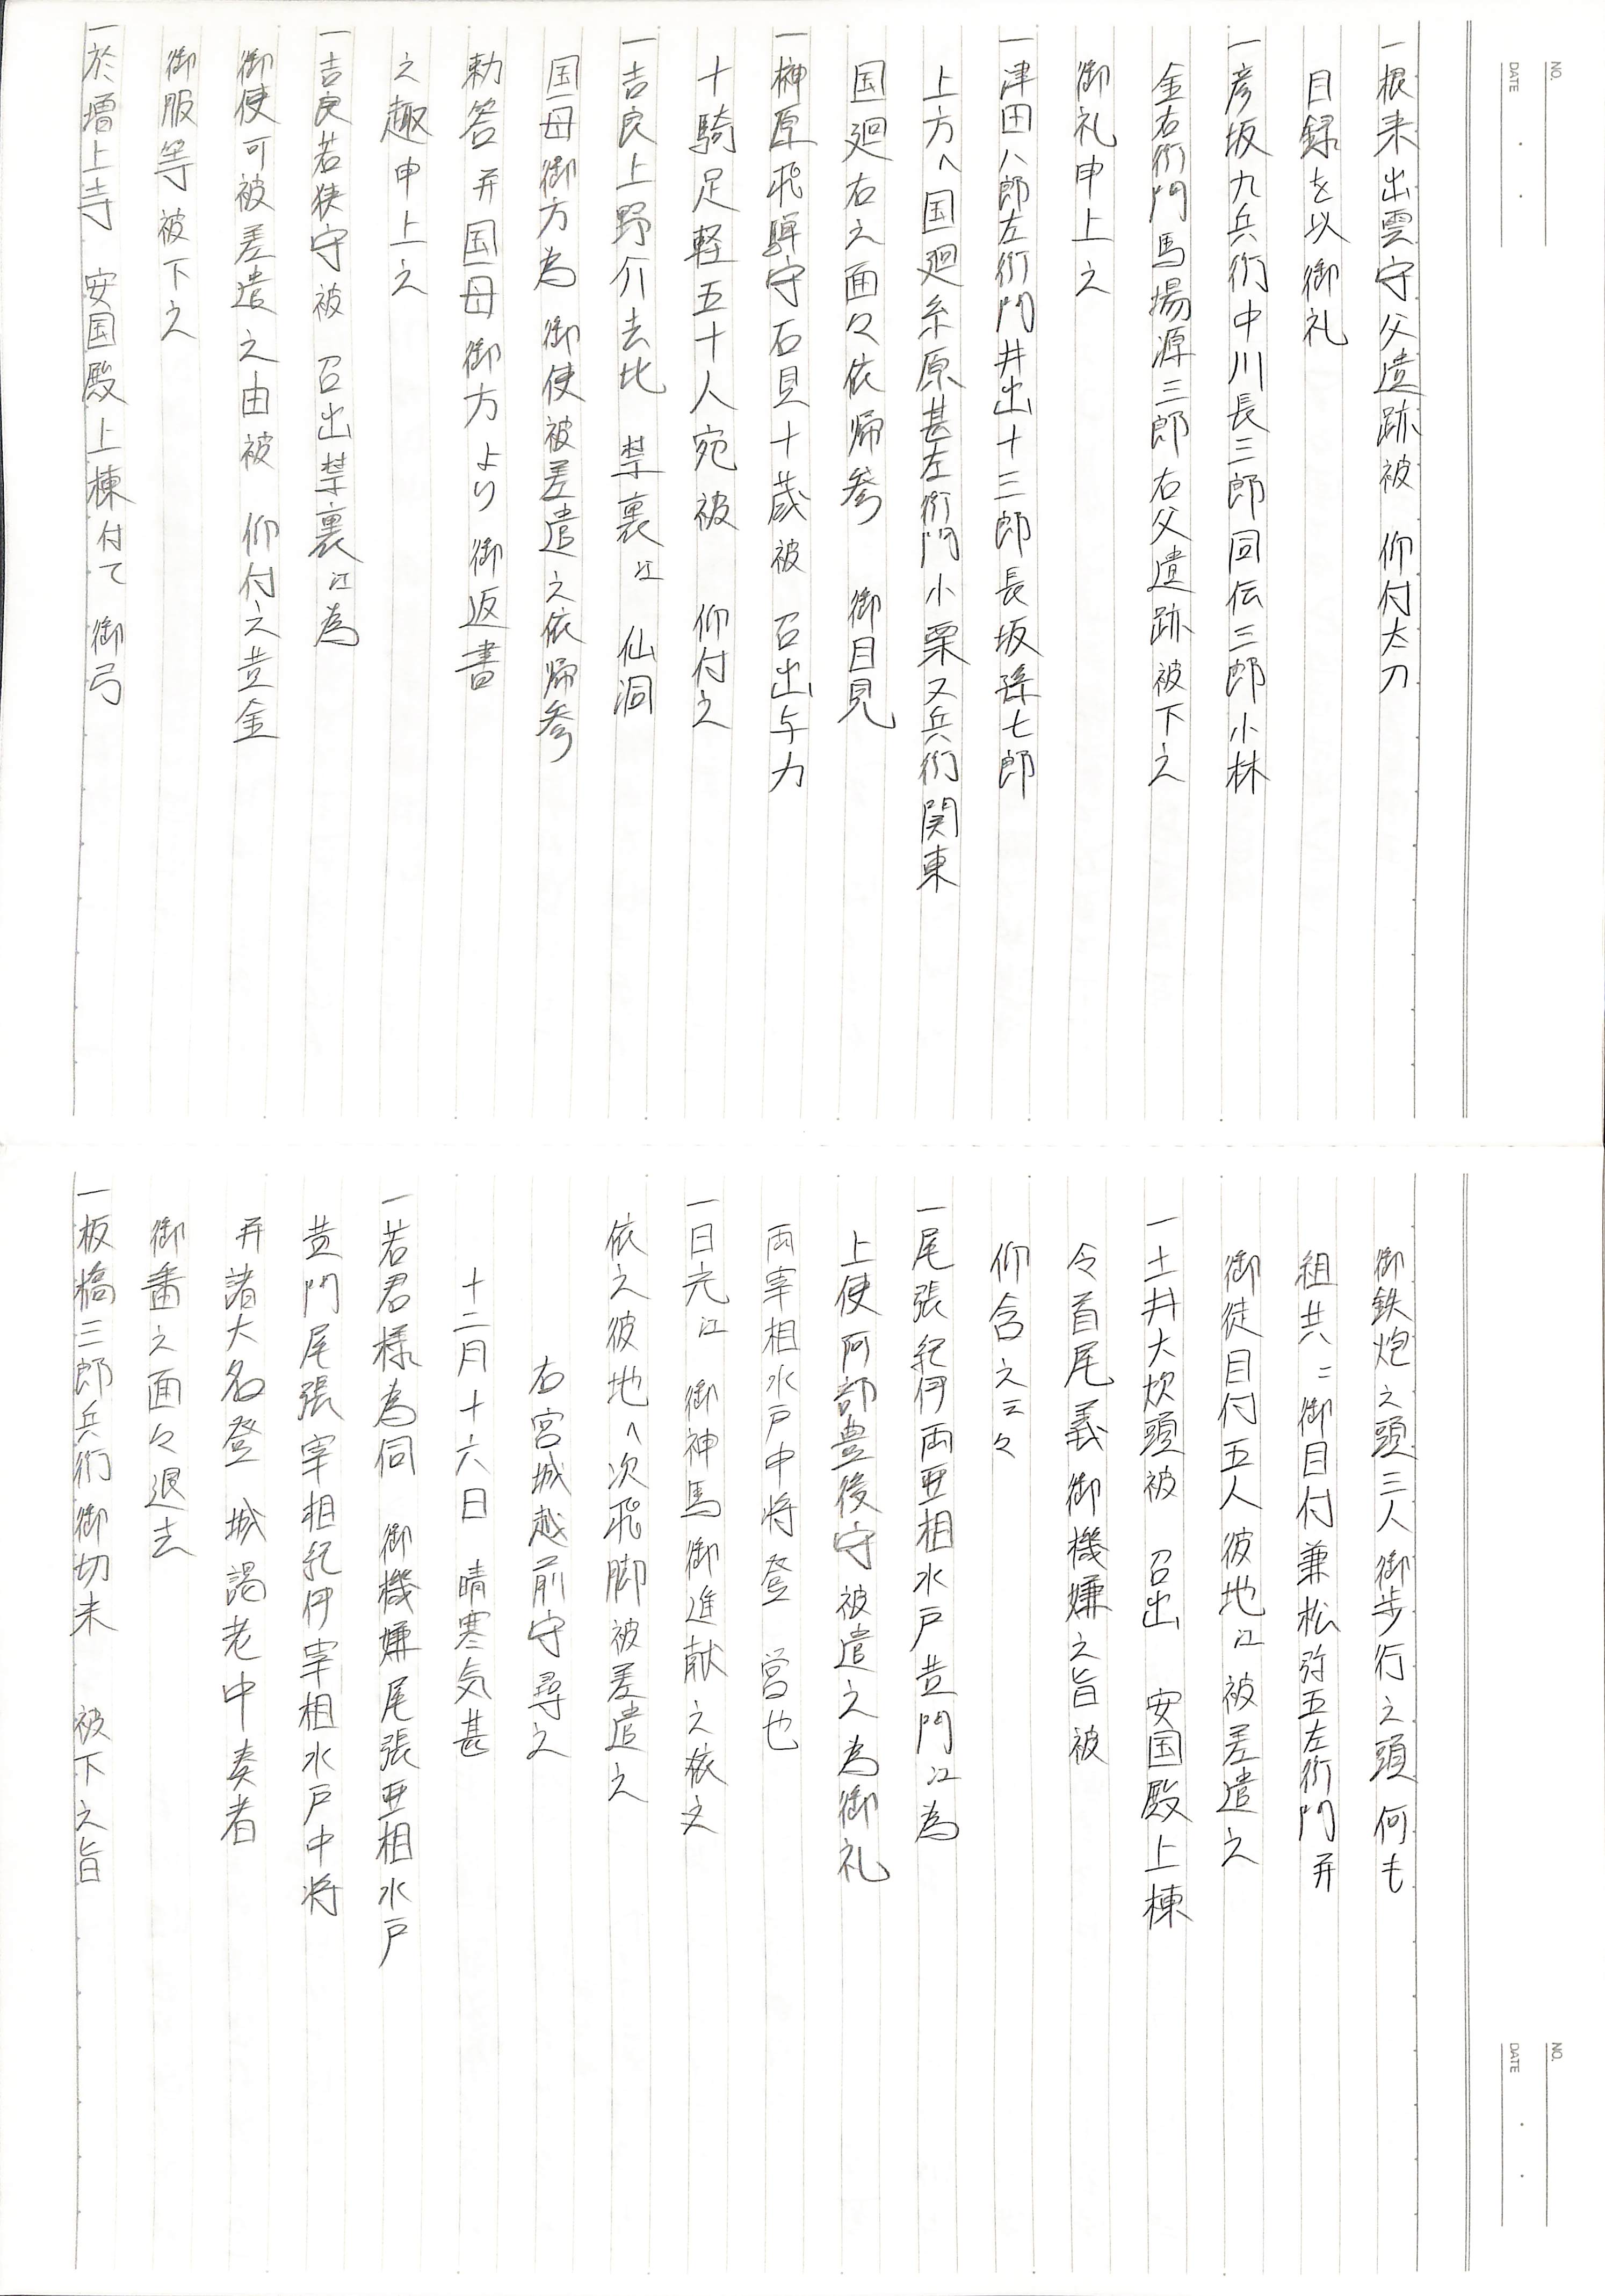 NO.
DATE
一根来出雲守父遺跡被　仰付太刀
目録を以御礼
一彦坂九兵衛中川長三郎同伝三郎小林
金右衛門馬場源三郎右父遺跡被下之
御礼申上之
一津田八郎左衛門井出十三郎長坂孫七郎
上方へ国廻糸原甚左衛門小栗又兵衛関東
国廻右之面々依帰参　御目見
一榊原飛騨守石見十歳被　召出与力
十騎足軽五十人宛被　仰付之
一吉良上野介去比　禁裏江　仙洞
国母御方為　御使被差遣之依帰参
勅答并国母御方より御返書
之趣申上之
一吉良若狭守被　召出禁裏江為
御使可被差遣之由被　仰付之黄金
御服等被下之
一於増上寺　安国殿上棟付て　御弓
NO.
DATE
御鉄炮之頭三人御歩行之頭何も
組共ニ御目付兼松弥五左衛門并
御徒目付五人彼地江被差遣之
一土井大炊頭被　召出　安国殿上棟
令首尾義御機嫌之旨被
仰含之云々
一尾張紀伊両亜相水戸黄門江為
上使阿部豊後守被遣之為御礼
両宰相水戸中将登　営也
一日光江　御神馬御進献之依之
依之彼地へ次飛脚被差遣之
右宮城越前守尋之
十二月十六日　晴寒気甚
一若君様為伺　御機嫌尾張亜相水戸
黄門尾張宰相紀伊宰相水戸中将
并諸大名登　城謁老中奏者
御番之面々退去
一板橋三郎兵衛御切米　被下之旨